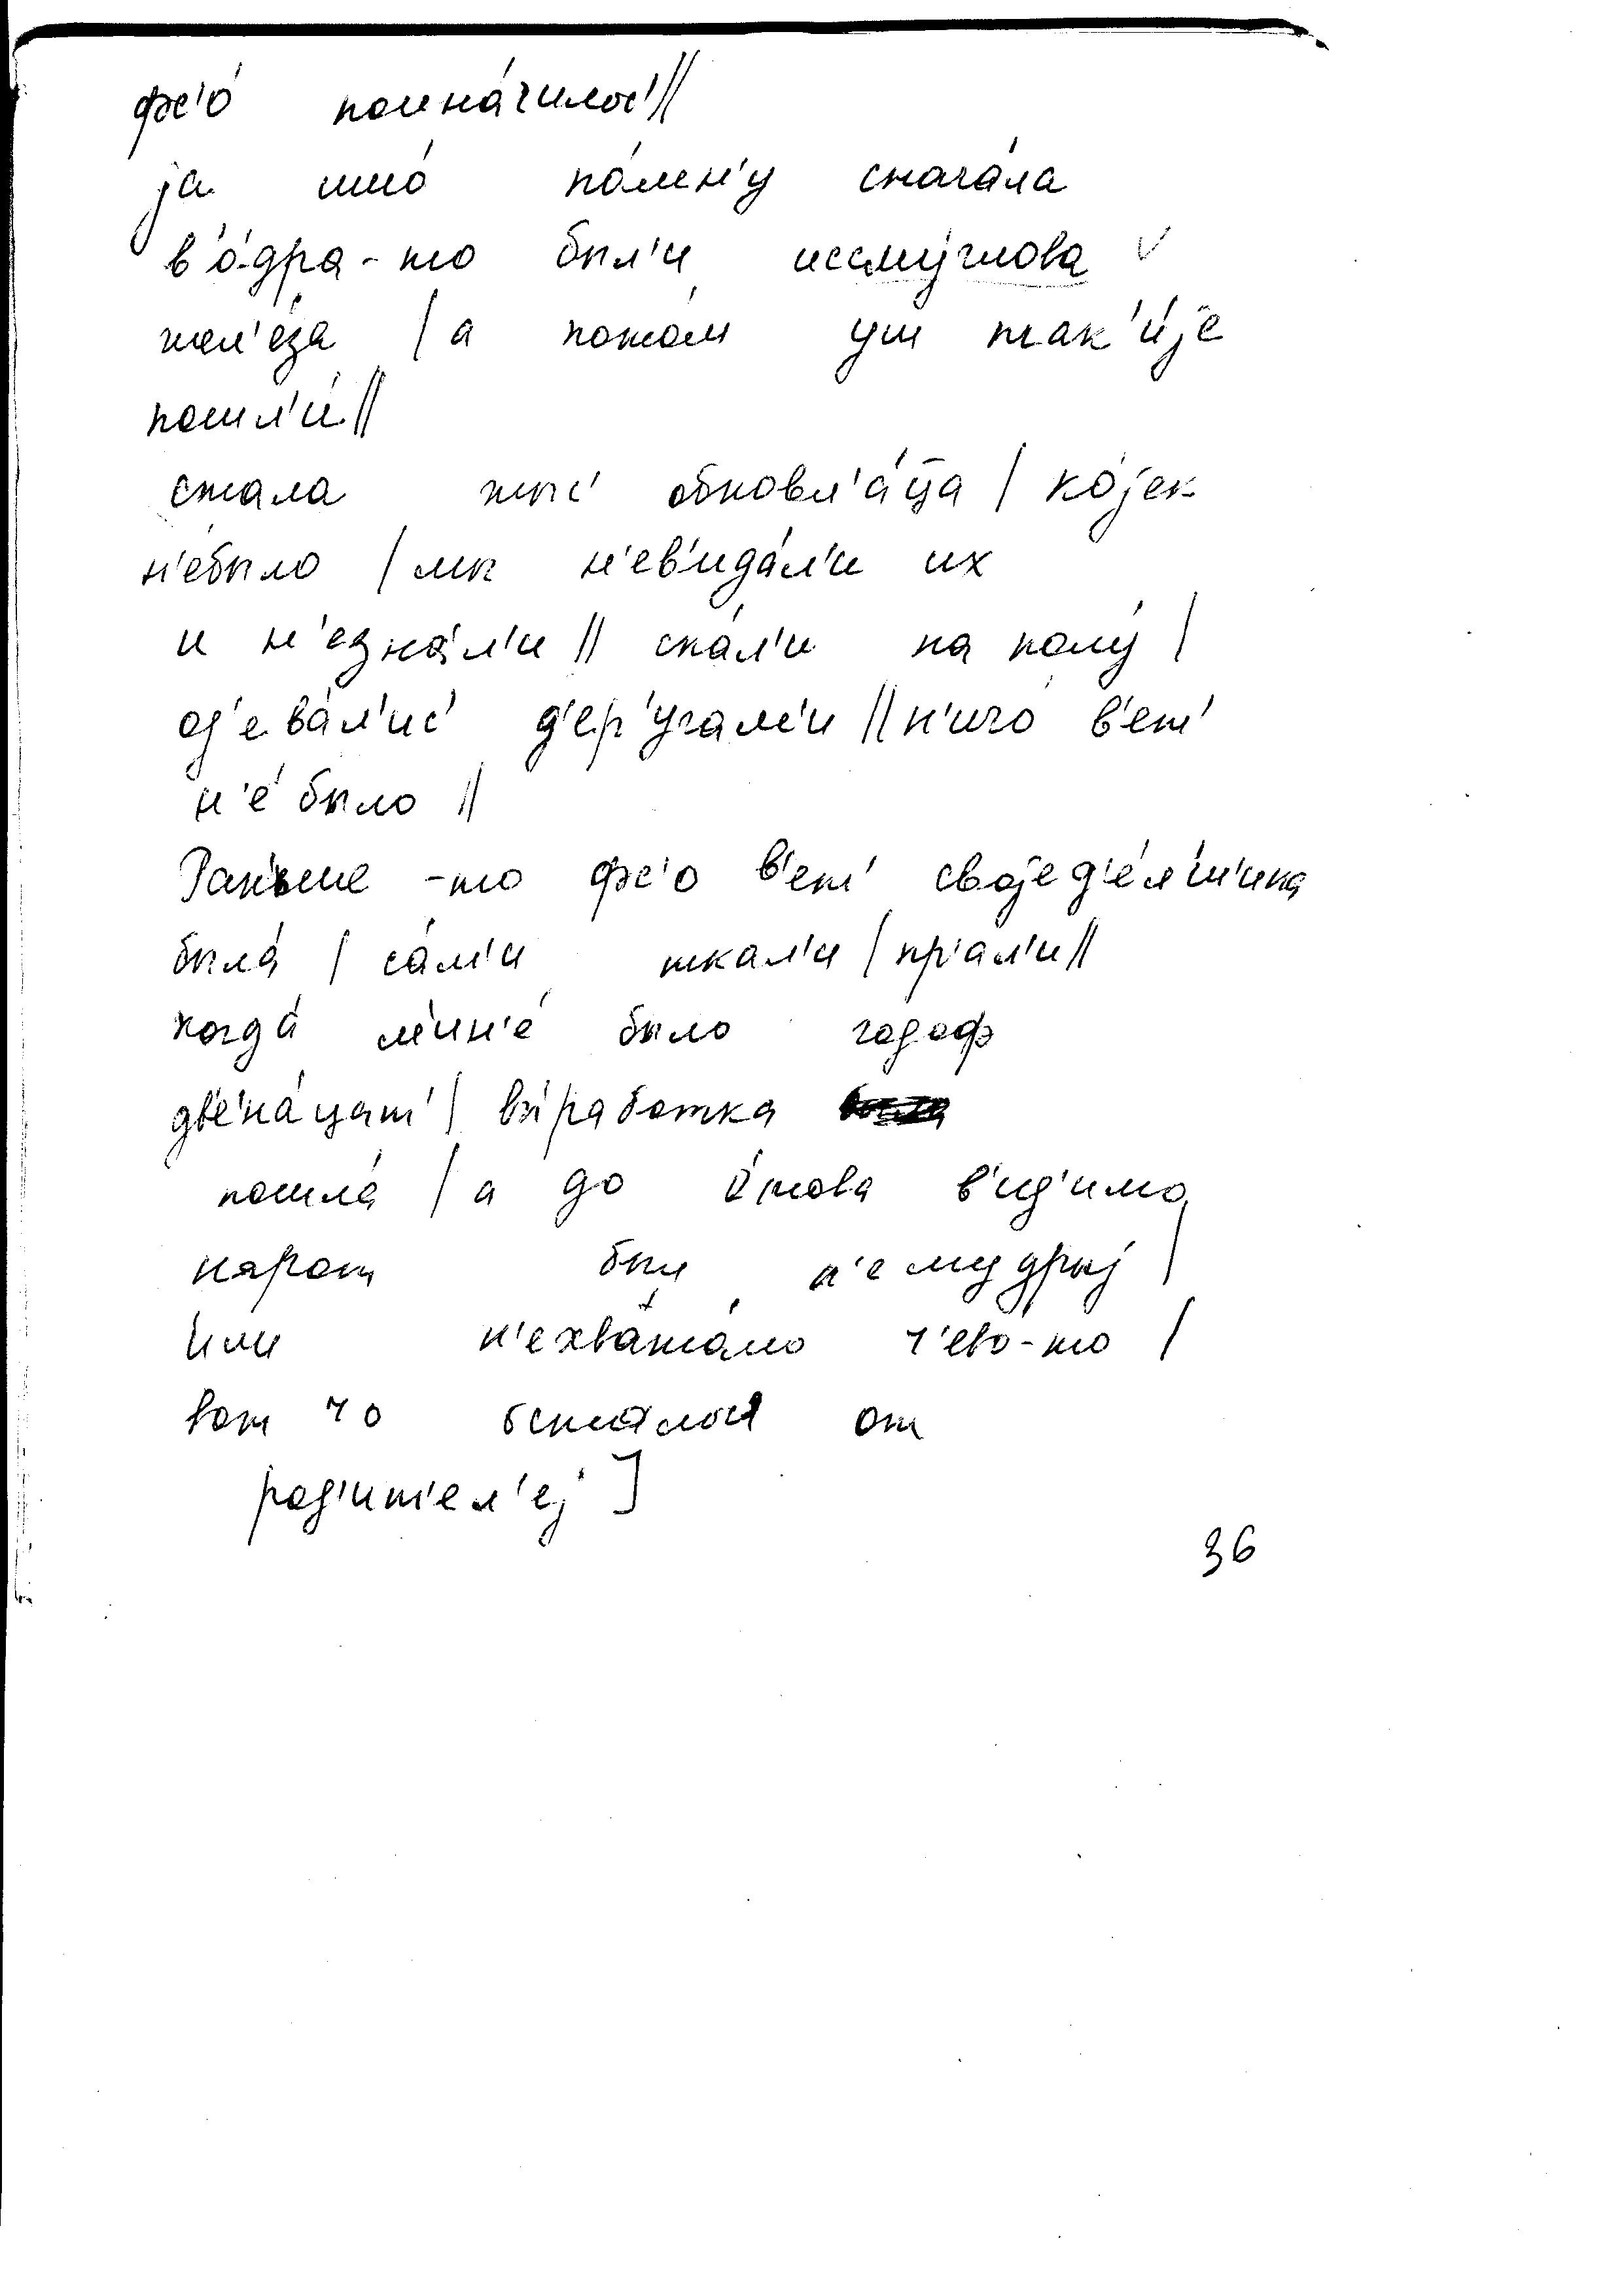 фс'о́ поина́чилос'||
jа ишо́ по́мн'у снача́ла
в'о́дра-то был'и иссму́глова
жел'е́за | а пото́м уш так'и́jе
пошл'и́||
стала жыс' обновл'а́ца | ко́jек
н'е́было | мы н'ев'ида́л'и их
и н'езна́л'и || спа́л'и на полу́ |
од'ева́л'ис' д'ер'у́гам'и || н'ичо́ в'ет'
н'е́ было ||
Ран'ьше -то фс'о в'ет' своjед'е́л'ш'ина
была́ | са́м'и ткал'и | пр'ал'и ||
когда́ м'ин'е́ было годоф
дв'ена́цат' | вы́работка
пошла́ | а до э́това в'ид'имо
нарот быу н'ему́дрыj |
и́ли н'ехвата́ло ч'ево́-то |
вот чо оста́лос' от
род'ит'ел'еj ]
36